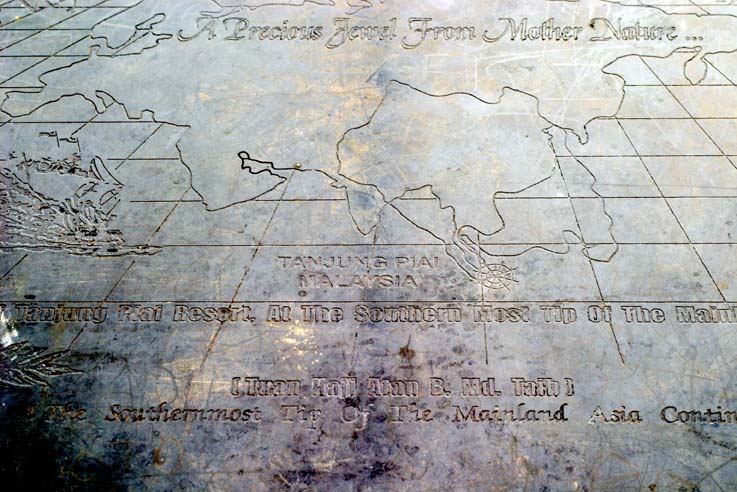 A Precious Jewel From Mother Nature ...
TANJUNG PIAI
MALAYSIA
Tanjung Piai Resort, At The Southern Most Tip Of The Mainl
( Tuan Haji Atan B. Md. Taib )
The Southernmost Tip Of The Mainland Asia Contin